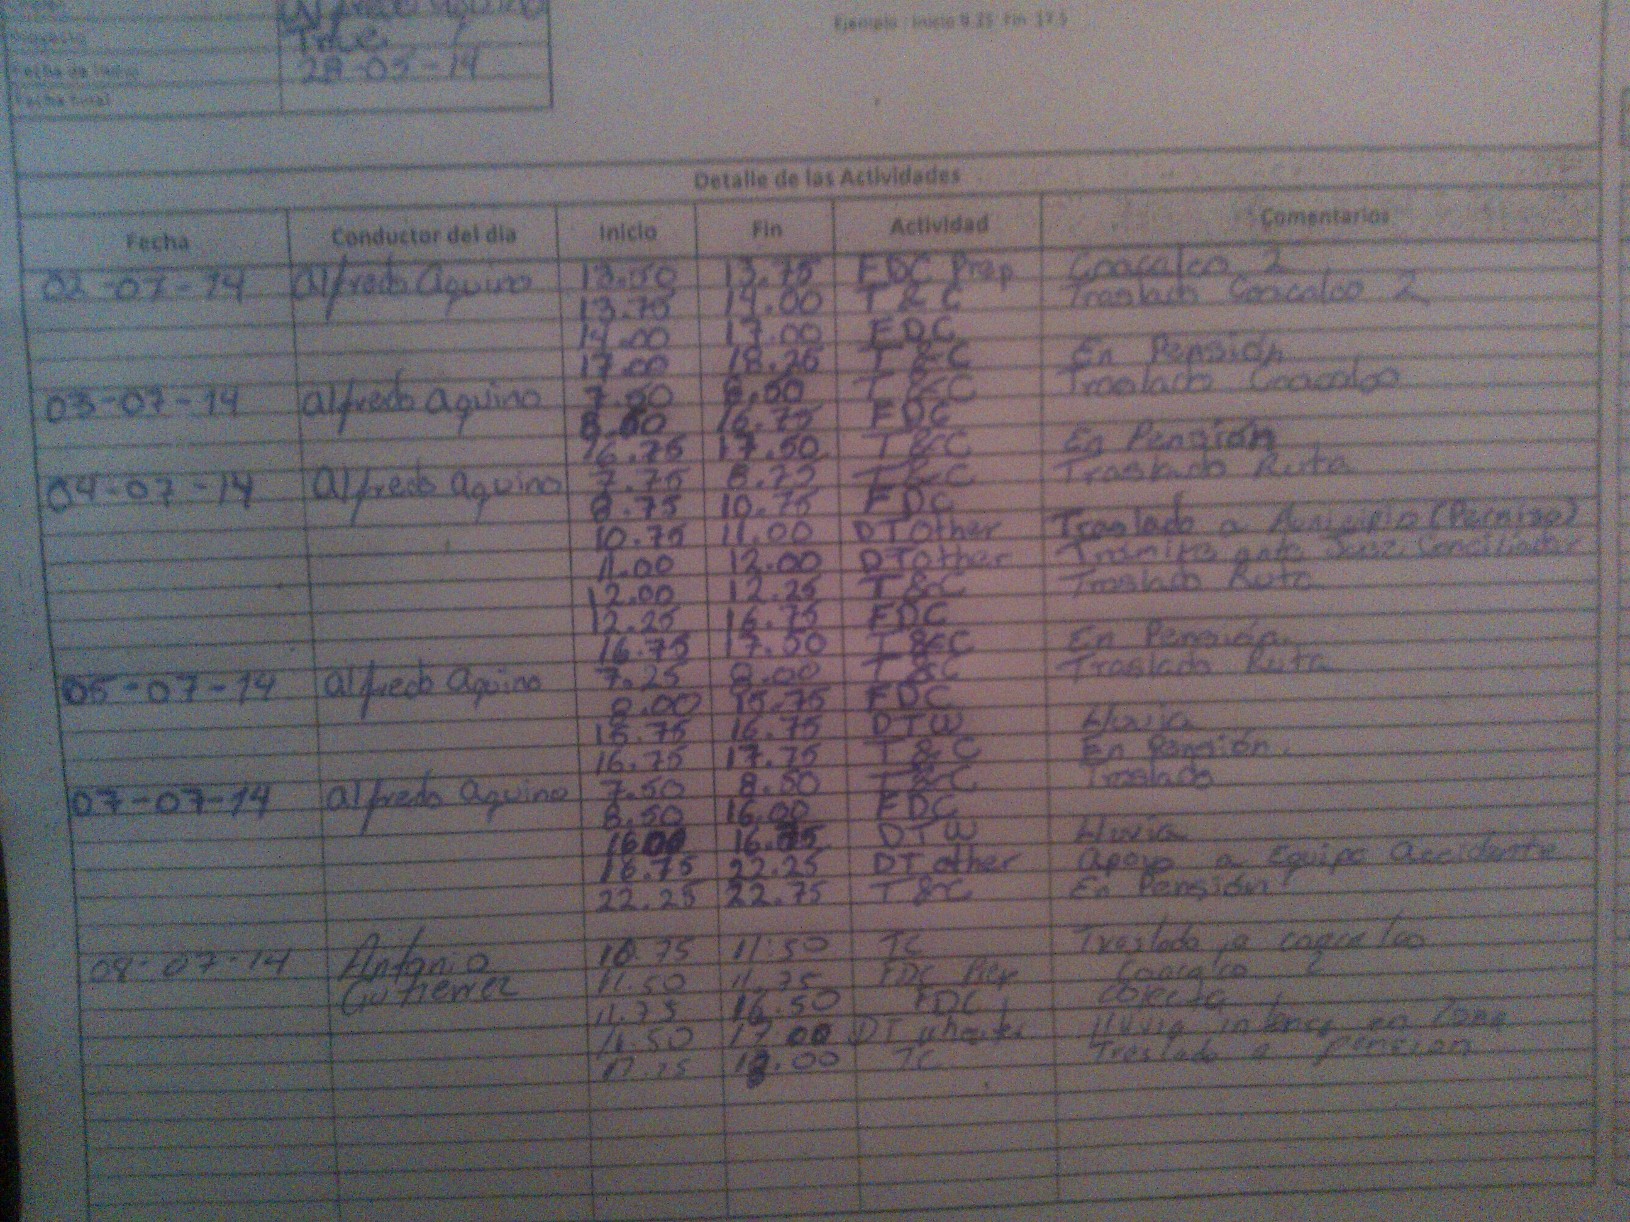 Alfredo Aquino
Proyecto
Fecha de Inicio 28-05-14
Fecha final
Ejemplo: Inicio 9.25 Fin 17.5
Detalle de las Actividades
Fecha Conductor del dia Inicio Fin Actividad Comentarios
02-07-14 Alfredo Aquino 13.50 13.75 FDC Prep Coacalco 2
13.75 14.00 T & C Traslado Coacalco 2
14.00 17.00 FDC
17.00 18.25 T & C En Pensión
03-07-14 Alfredo Aquino 7.50 8.50 T & C Traslado Coacalco
8.50 16.75 FDC
16.75 17.50 T & C En Pensión
04-07-14 Alfredo Aquino 7.75 8.75 T & C Traslado Ruta
8.75 10.75 FDC
10.75 11.00 DT Other Traslado a Municipio (Permiso)
11.00 12.00 DT Other Tramite ante Juez Conciliador
12.00 12.25 T & C Traslado Ruta
12.25 16.75 FDC
16.75 17.50 T & C En Pensión
05-07-14 Alfredo Aquino 7.25 8.00 T & C Traslado Ruta
8.00 15.75 FDC
15.75 16.75 DTW Lluvia
16.75 17.75 T & C En Pensión.
07-07-14 Alfredo Aquino 7.50 8.50 T & C Traslado
8.50 16.00 FDC
16.00 16.75 DTW Lluvia
16.75 22.25 DT other Apoyo a Equipo Accidente
22.25 22.75 T & C En Pensión
08-07-14 Antonio 10.75 11:50 TC Traslado a coacalco
Gutierrez 11.50 11.75 FDC Coacalco 2
11.75 16.50 FDC Colecta
16.50 17.00 DT Lluvia intensa en Zona
17.25 18.00 TC Traslado a pension